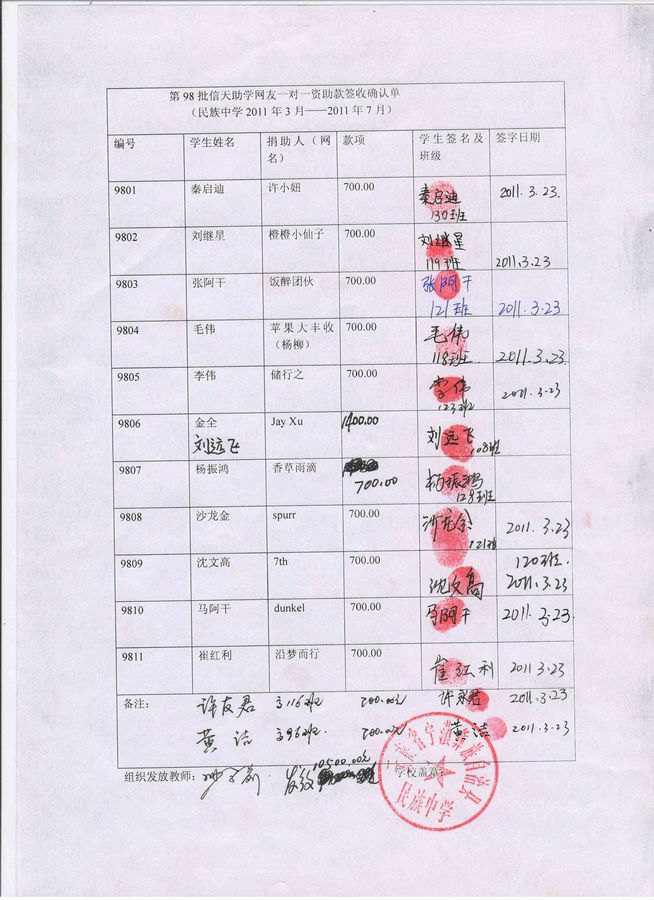 第98批信天助学网友一对一资助款签收确认单
（民族中学2011年3月——2011年7月）
编号 学生姓名 捐助人（网名） 款项 学生签名及班级 签字日期
9801 秦启迪 许小妞 700.00 秦启迪 130班 2011.3.23.
9802 刘继星 橙橙小仙子 700.00 刘继星 119班 2011.3.23
9803 张阿干 饭醉团伙 700.00 张阿干 121班 2011.3.23
9804 毛伟 苹果大丰收（杨柳） 700.00 毛伟 118班 2011.3.23.
9805 李伟 储行之 700.00 李伟 123班 2011.3.23
9806 金全 刘远飞 Jay Xu 1400.00 刘远飞 108班
9807 杨振鸿 香草雨滴 700.00 杨振鸿 128班
9808 沙龙金 spurr 700.00 沙龙金 121班 2011.3.23
9809 沈文高 7th 700.00 沈文高 120班. 2011.3.23
9810 马阿干 dunkel 700.00 马阿干 2011.3.23.
9811 崔红利 沿梦而行 700.00 崔红利 2011.3.23
备注： 许友君 高116班 700.00元 许友君 2011.3.23
黄洁 高96班. 700.00元 黄洁 2011.3.23
组织发放教师： 发放 10500.00元 学校盖章
宁蒗彝族自治县
民族中学